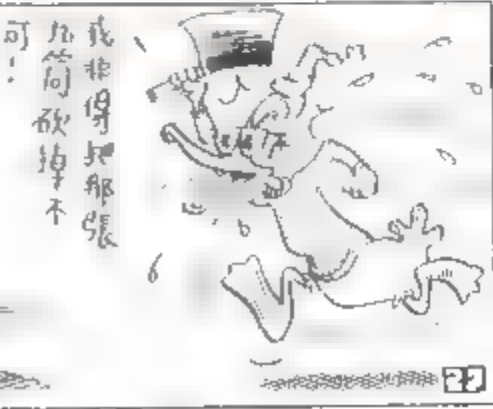 我非得把那張
九筒砍掉不
可！